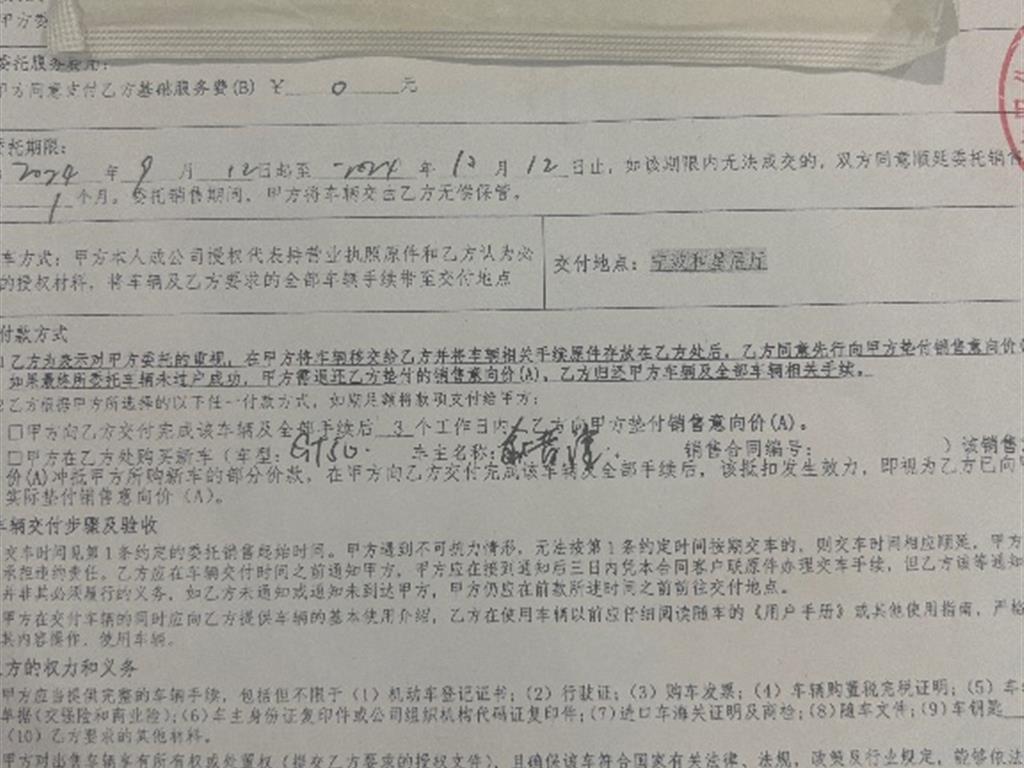 甲方委
委托服务费用:
甲方同意支付乙方基础服务费(B) ¥ 0 元
委托期限:
2024 年 9 月 12日起至 2024 年 10 月 12 日止, 如该期限内无法成交的, 双方同意顺延委托销售
1 个月。委托销售期间, 甲方将车辆交由乙方无偿保管。
车方式: 甲方本人或公司授权代表持营业执照原件和乙方认为必
的授权材料, 将车辆及乙方要求的全部车辆手续带至交付地点
交付地点:
付款方式
乙方为表示对甲方委托的重视, 在甲方将车辆移交给乙方并将车辆相关手续原件存放在乙方处后, 乙方同意先行向甲方垫付销售意向价(
如果最终所委托车辆未过户成功, 甲方需退还乙方垫付的销售意向价(A), 乙方归还甲方车辆及全部车辆相关手续。
乙方根据甲方所选择的以下任一付款方式, 如期足额将款项支付给甲方:
□甲方向乙方交付完成该车辆及全部手续后 3 个工作日内, 乙方向甲方垫付销售意向价(A)。
□甲方在乙方处购买新车 (车型: GT50. 车主名称: 销售合同编号: ) 该销售
价(A)冲抵甲方所购新车的部分价款, 在甲方向乙方交付完成该车辆及全部手续后, 该抵扣发生效力, 即视为乙方已向甲
实际垫付销售意向价 (A)。
车辆交付步骤及验收
交车时间见第1条约定的委托销售起始时间。甲方遇到不可抗力情形, 无法按第1条约定时间按期交车的, 则交车时间相应顺延, 甲方
承担违约责任。乙方应在车辆交付时间之前通知甲方, 甲方应在接到通知后三日内凭本合同客户联原件办理交车手续, 但乙方该等通知
并非其必须履行的义务, 如乙方未通知或通知未到达甲方, 甲方仍应在前款所述时间之前前往交付地点。
甲方在交付车辆的同时应向乙方提供车辆的基本使用介绍, 乙方在使用车辆以前应仔细阅读随车的《用户手册》或其他使用指南, 严格
其内容操作、使用车辆。
方的权力和义务
甲方应当提供完整的车辆手续, 包括但不限于 (1) 机动车登记证书; (2) 行驶证; (3) 购车发票; (4) 车辆购置税完税证明; (5) 车
单据(交强险和商业险);(6)车主身份证复印件或公司组织机构代码证复印件;(7)进口车海关证明及商检;(8)随车文件;(9)车钥匙
(10) 乙方要求的其他材料。
甲方对出售车辆享有所有权或处置权 (提交乙方要求的授权文件), 且确保该车符合国家有关法律、法规, 政策及行业规定, 能够依法